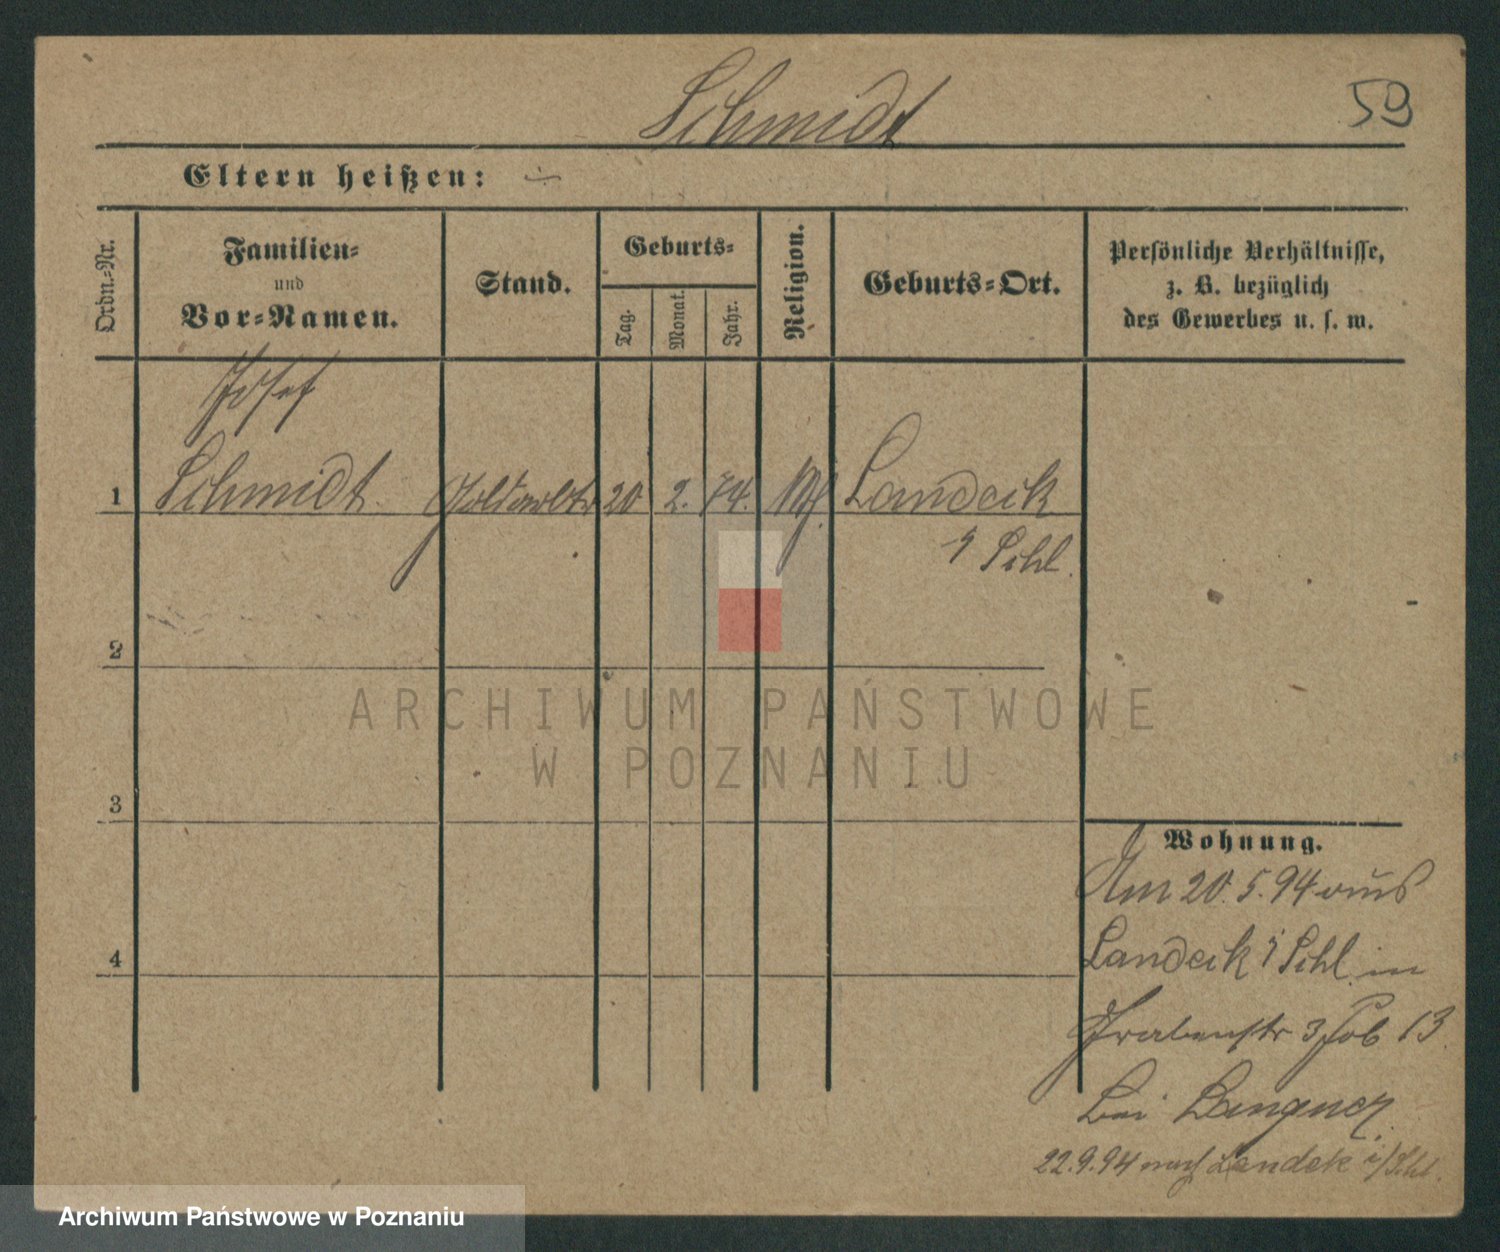 Schmidt
59
Eltern heißen:
Ordn.-Nr.
Familien-
und
Vor-Namen.
Stand.
Geburts-
Tag.
Monat.
Jahr.
Religion.
Geburts-Ort.
Persönliche Verhältnisse,
z. B. bezüglich
des Gewerbes u. s. w.
Josef
1 Schmidt 20 2. 74. Landeck
Schl.
2
3
4
Wohnung.
Am 20.5.94 aus
Landeck i Schl in
Grabenstr 3 13
bei
22.9.94 nach Landek i/Schl.
ARCHIWUM PAŃSTWOWE
W POZNANIU
Archiwum Państwowe w Poznaniu